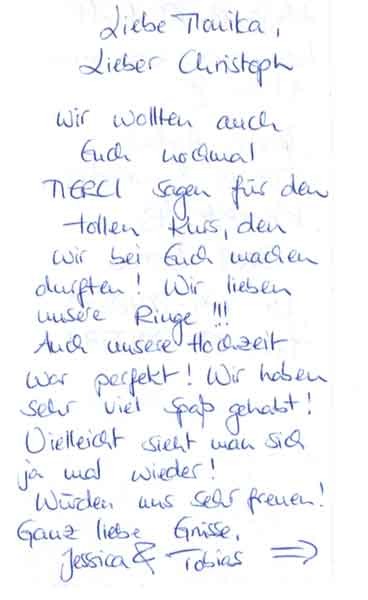 Liebe Monika,
Lieber Christoph
Wir wollten auch
Euch nochmal
MERCI sagen für den
tollen Kurs, den
wir bei Euch machen
durften! Wir lieben
unsere Ringe !!!
Auch unsere Hochzeit
war perfekt! Wir haben
sehr viel Spaß gehabt!
Vielleicht sieht man sich
ja mal wieder!
Würden uns sehr freuen!
Ganz liebe Grüsse,
Jessica & Tobias ⇒